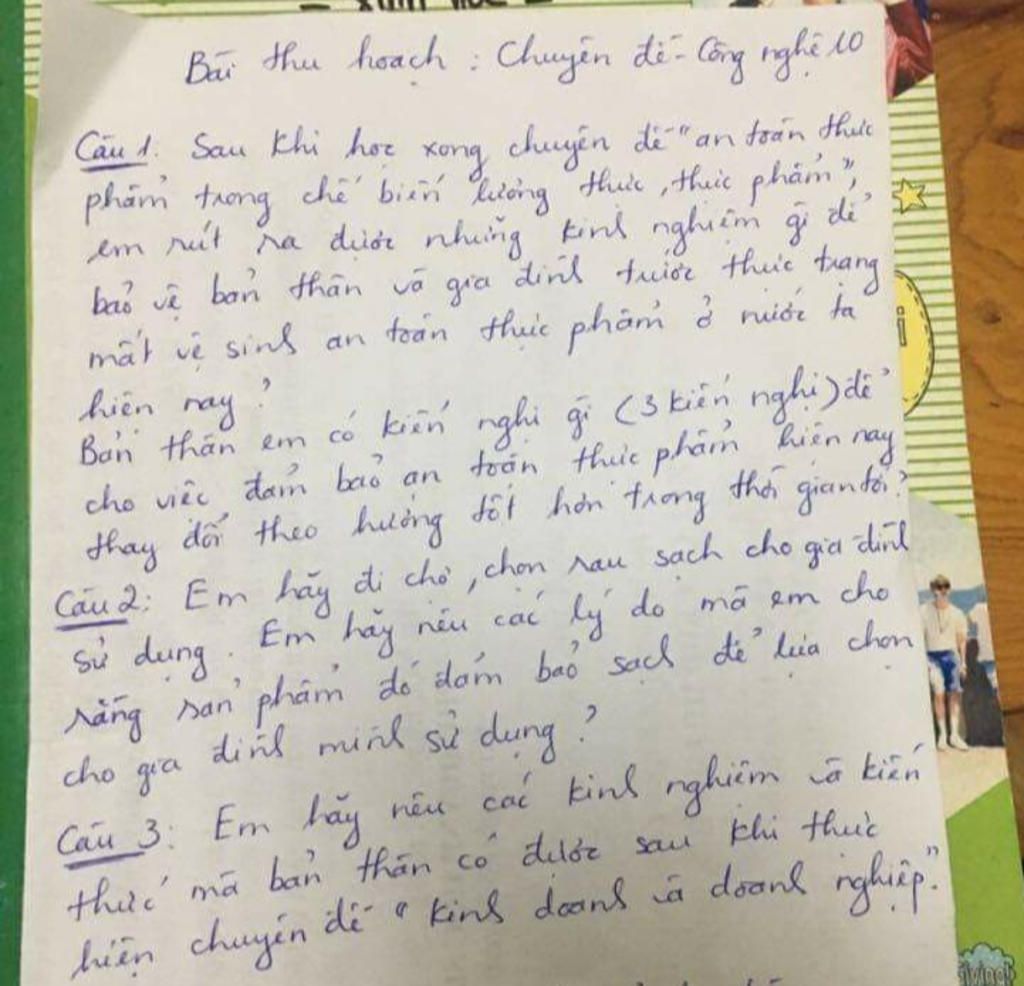 Bài thu hoạch : Chuyên đề - Công nghệ 10
Câu 1. Sau khi học xong chuyên đề "an toàn thực
phẩm trong chế biến lương thực, thực phẩm",
em rút ra được những kinh nghiệm gì để
bảo vệ bản thân và gia đình trước thực trạng
mất vệ sinh an toàn thực phẩm ở nước ta
hiện nay ?
Bản thân em có kiến nghị gì (3 kiến nghị) để
cho việc đảm bảo an toàn thực phẩm hiện nay
thay đổi theo hướng tốt hơn trong thời gian tới ?
Câu 2: Em hãy đi chợ, chọn rau sạch cho gia đình
sử dụng. Em hãy nêu các lý do mà em cho
rằng sản phẩm đó đảm bảo sạch để lựa chọn
cho gia đình mình sử dụng ?
Câu 3: Em hãy nêu các kinh nghiệm và kiến
thức mà bản thân có được sau khi thực
hiện chuyên đề "kinh doanh và doanh nghiệp".